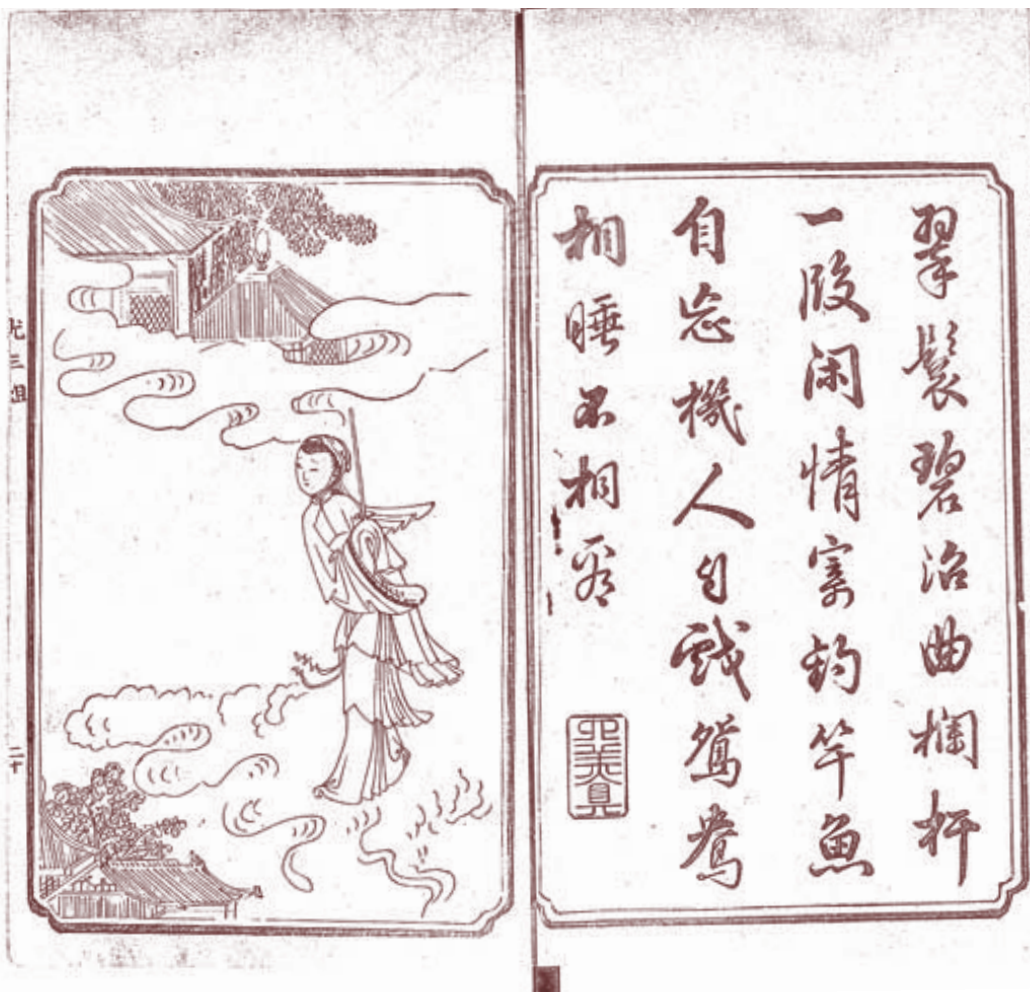 翠鬟碧沼曲欄杆
一段閑情寄釣竿魚
自忘機人自戲鴛鴦
相睡不相看
尤三姐
二十